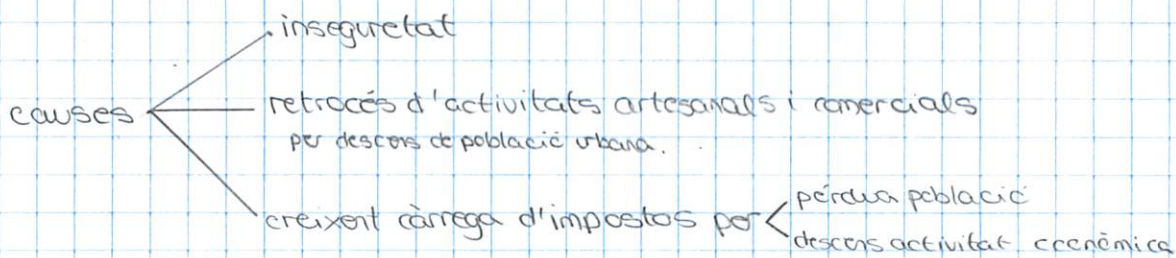 inseguretat
causes
retrocés d'activitats artesanals i comercials
per descens de població urbana.
creixent càrrega d'impostos per
pérdua població
descens activitat econòmica